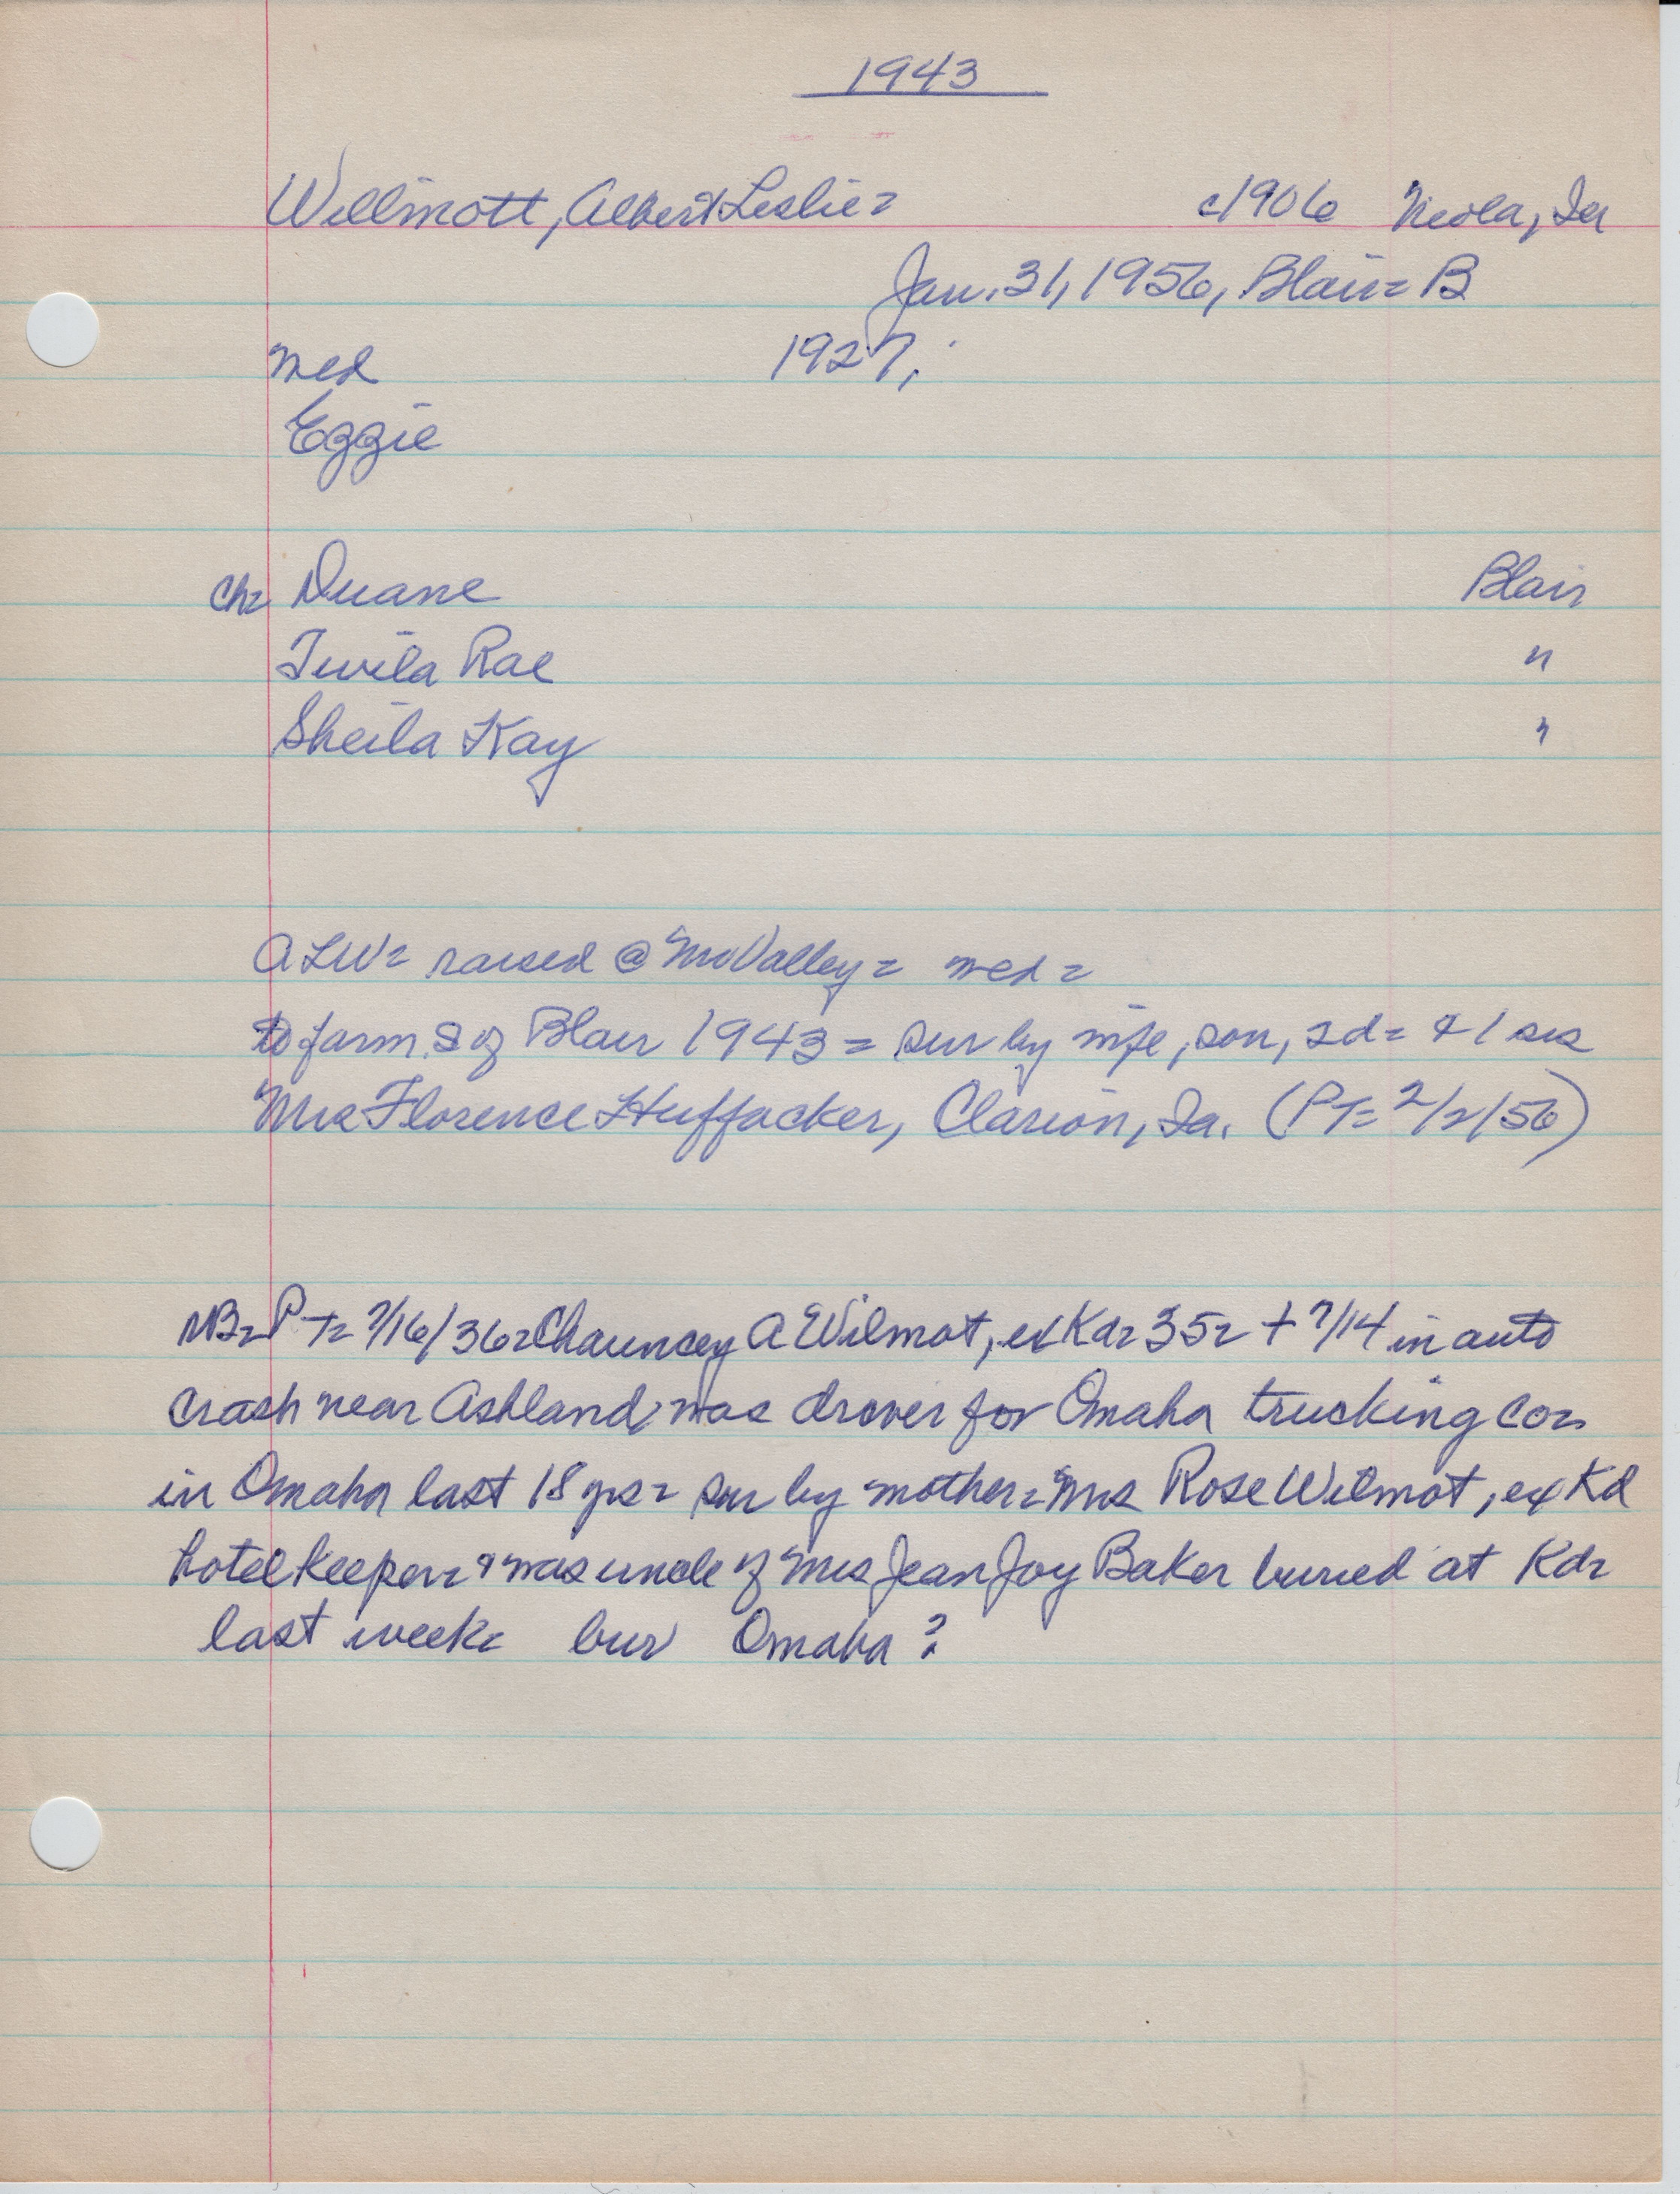 1943
Willmott, Albert Leslie = c1906 Neola, Ia
Jan. 31, 1956, Blair = B
med 1927,
Eggie
Ch= Duane Blair
Twila Rae "
Sheila Kay "
ALW= raised @ Mo Valley = med =
to farm S of Blair 1943 = sur by wife, son, 2d= & 1 sis
Mrs Florence Huffacker, Clarion, Ia. (PT= 2/2/56)
NB= PT= 7/16/36= Chauncey A Wilmot, ex Kd= 35= + 7/14 in auto
crash near Ashland, was driver for Omaha trucking co=
in Omaha last 18 yrs= sur by mother= Mrs Rose Wilmot, ex Kd
hotel keeper= & was uncle of Mrs Jean Joy Baker buried at Kd=
last week= bur Omaha?